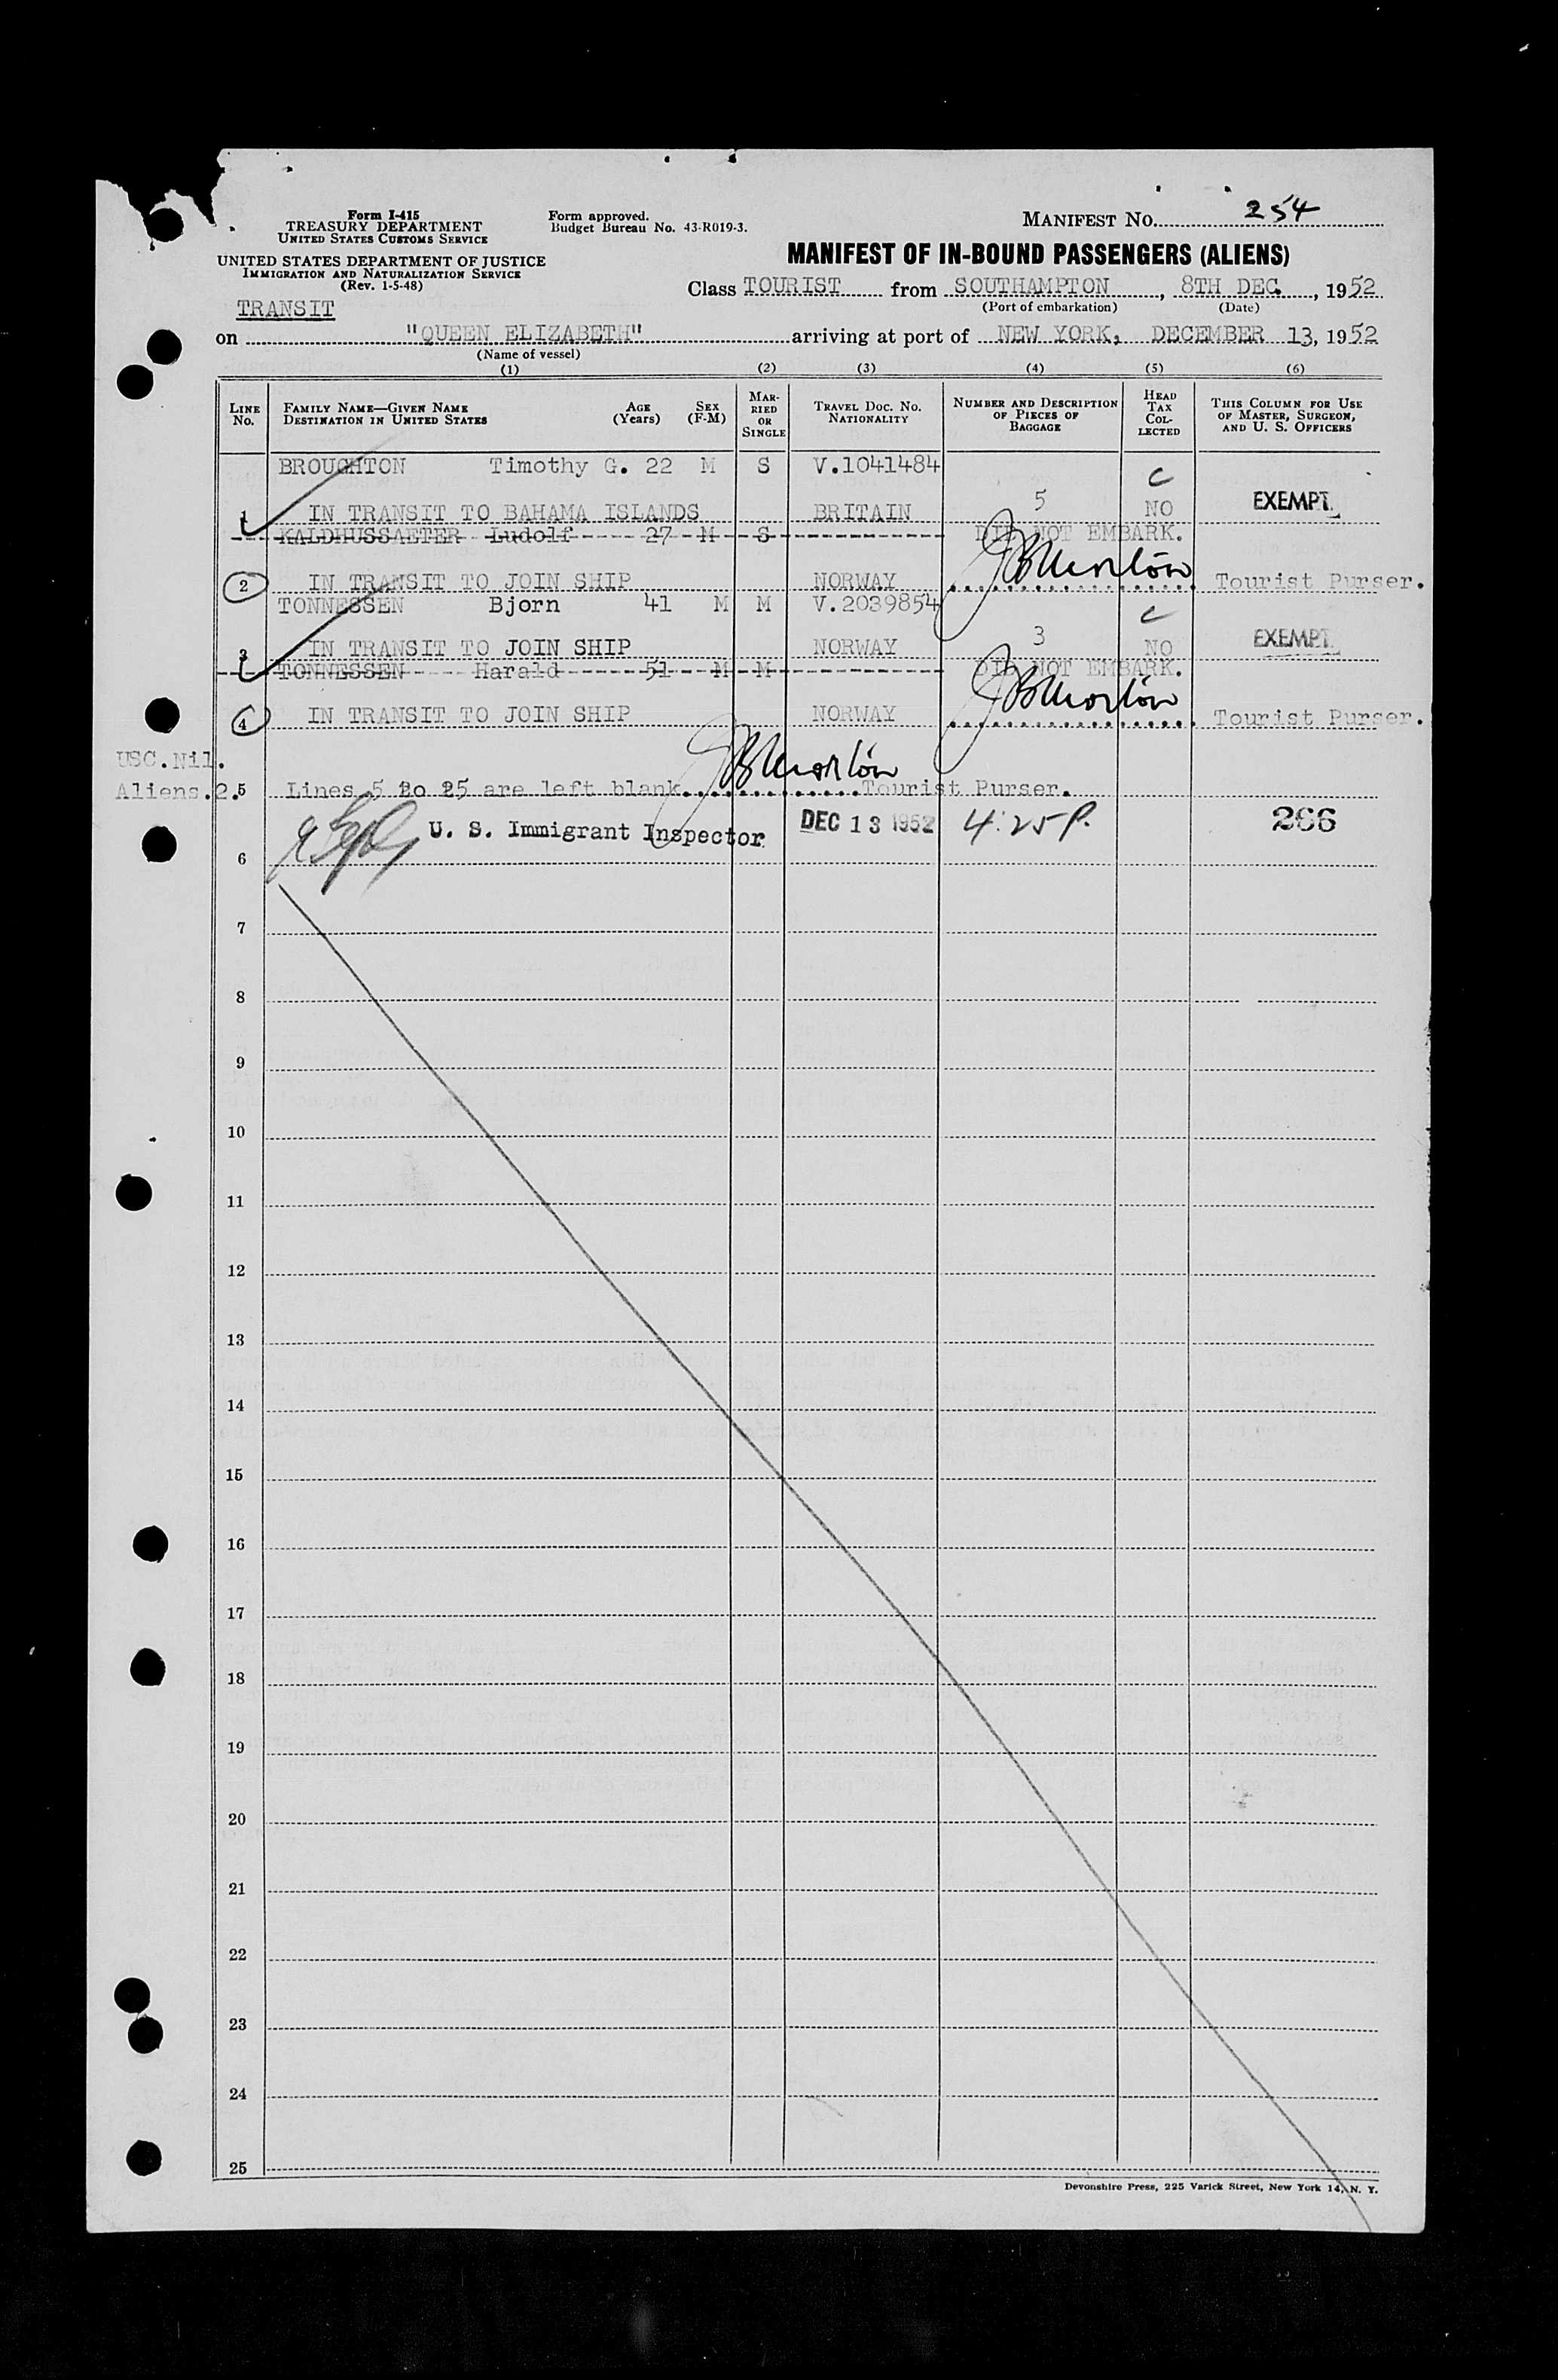 254
Form I-415
TREASURY DEPARTMENT
UNITED STATES CUSTOMS SERVICE
Form approved.
Budget Bureau No. 43-R019-3.
MANIFEST NO.
UNITED STATES DEPARTMENT OF JUSTICE
IMMIGRATION AND NATURALIZATION SERVICE
(Rev. 1-5-48)
MANIFEST OF IN-BOUND PASSENGERS (ALIENS)
Class TOURIST from SOUTHAMPTON, 8TH DEC., 1952
(Port of embarkation) (Date)
TRANSIT
on "QUEEN ELIZABETH" arriving at port of NEW YORK, DECEMBER 13, 1952
(Name of vessel)
(1) (2) (3) (4) (5) (6)
LINE NO. FAMILY NAME—GIVEN NAME DESTINATION IN UNITED STATES AGE (Years) SEX (F-M) MARRIED OR SINGLE TRAVEL DOC. NO. NATIONALITY NUMBER AND DESCRIPTION OF PIECES OF BAGGAGE HEAD TAX COLLECTED THIS COLUMN FOR USE OF MASTER, SURGEON, AND U. S. OFFICERS
BROUGHTON Timothy G. 22 M S V.1041484 C
1 IN TRANSIT TO BAHAMA ISLANDS BRITAIN 5 NO EXEMPT.
KALDHUSSAETER Ludolf 27 M S DID NOT EMBARK.
2 IN TRANSIT TO JOIN SHIP NORWAY JBMorton Tourist Purser.
TONNESSEN Bjorn 41 M M V.2039854 C
3 IN TRANSIT TO JOIN SHIP NORWAY 3 NO EXEMPT.
TONNESSEN Harald 51 M M DID NOT EMBARK.
4 IN TRANSIT TO JOIN SHIP NORWAY JBMorton Tourist Purser.
USC.Nil.
Aliens.2.
5 Lines 5 to 25 are left blank. JBMorton Tourist Purser.
U. S. Immigrant Inspector DEC 13 1952 4:25 P. 266
6
7
8
9
10
11
12
13
14
15
16
17
18
19
20
21
22
23
24
25
Devonshire Press, 225 Varick Street, New York 14, N. Y.